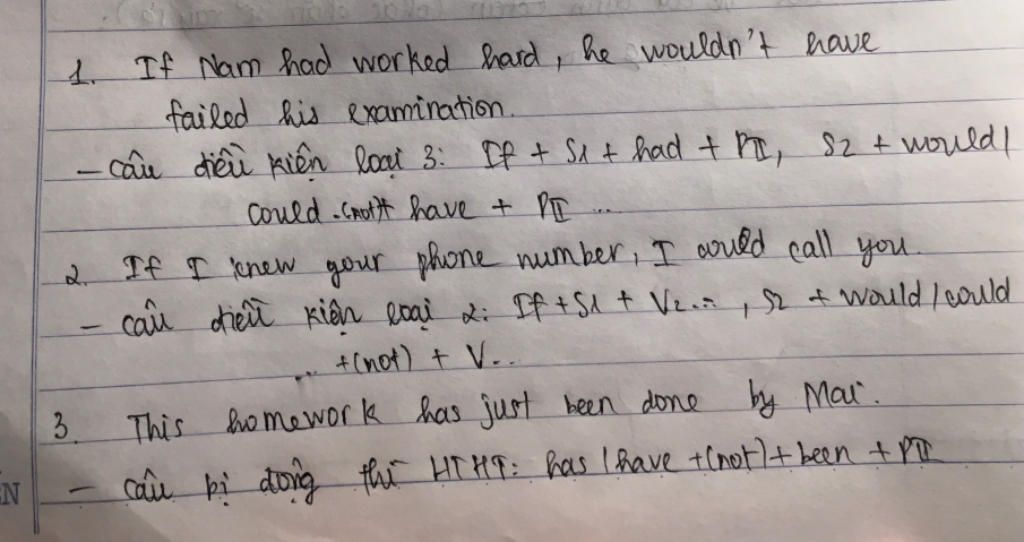 1. If Nam had worked hard, he wouldn't have
failed his examination.
- câu điều kiện loại 3: If + S1 + had + PII, S2 + would/
could (not)+ have + PII ...
2. If I knew your phone number, I could call you.
- câu điều kiện loại 2: If + S1 + V2..., S2 + would/could
... +(not) + V...
3. This homework has just been done by Mai.
- câu bị động thì HTHT: has/have +(not)+ been + PII
N